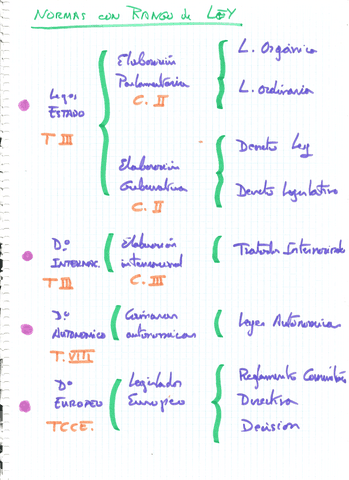 NORMAS CON RANGO de LEY
Leyes
ESTADO
T III
Elaboración
Parlamentaria
C. II
L. Orgánica
L. ordinaria
Elaboración
Gubernativa
C. II
Decreto Ley
Decreto Legislativo
Dº
INTERNAC.
T III
Elaboración
internacional
C. III
Tratados Internacionales
Dº
AUTONÓMICO
T. VIII
Cámaras
autonómicas
Leyes Autonómicas
Dº
EUROPEO
TCCE.
Legislador
Europeo
Reglamento Comunitario
Directiva
Decisión